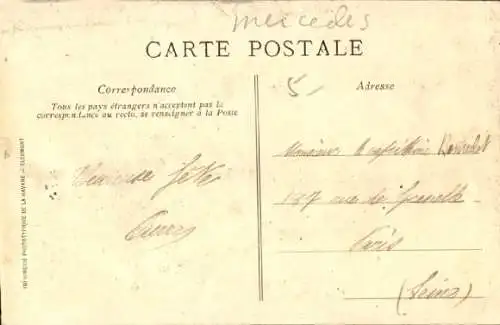 mercedes
CARTE POSTALE
Correspondance
Tous les pays étrangers n'acceptent pas la
correspondance au recto, se renseigner à la Poste
Adresse
5-
Heureuse fête
Monsieur le
127 rue de Grenelle
Paris
(Seine)
IMPRIMERIE PHOTOTYPIQUE DE LA HAVANE - CLERMONT